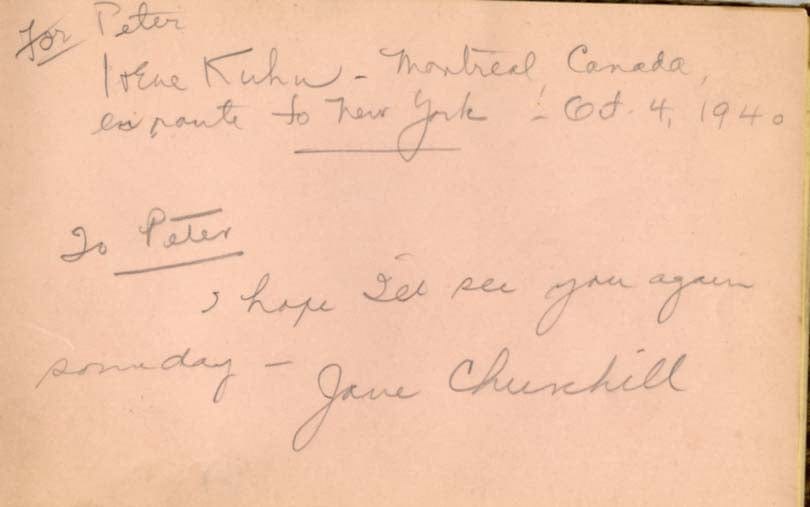 For Peter
Irene Kuhn - Montreal Canada,
en route to New York - Oct. 4, 1940
To Peter
I hope I'll see you again
someday -
Jane Churchill